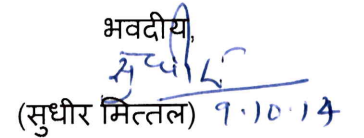 भवदीय,
सुधीर
(सुधीर मित्तल) 9.10.14